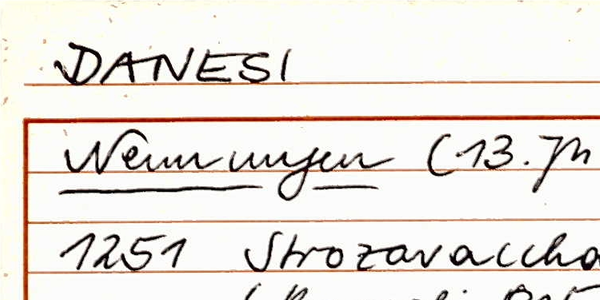 DANESI
Nennungen (13. Jh
1251 Strozavaccha